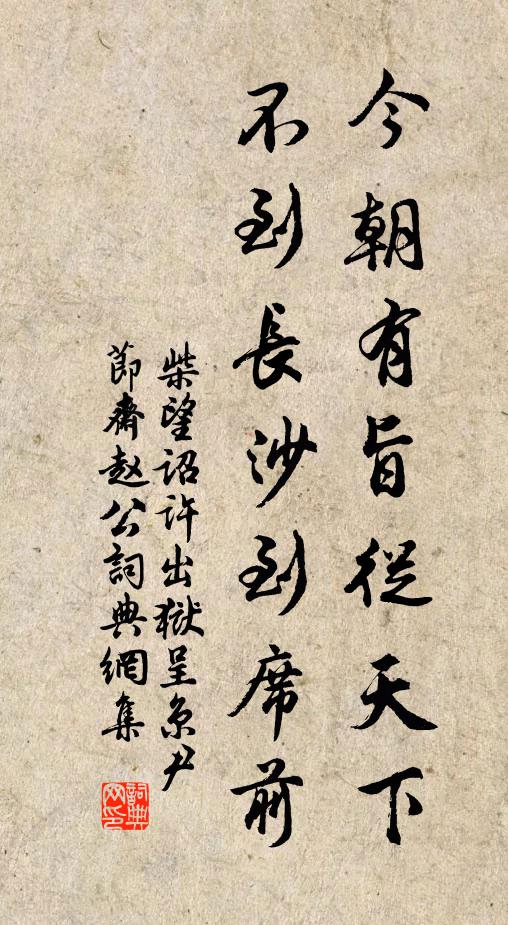 今朝有旨從天下
不到長沙到席前
柴望詔許出獄呈京尹
節齋趙公詞典網集
詞典网印